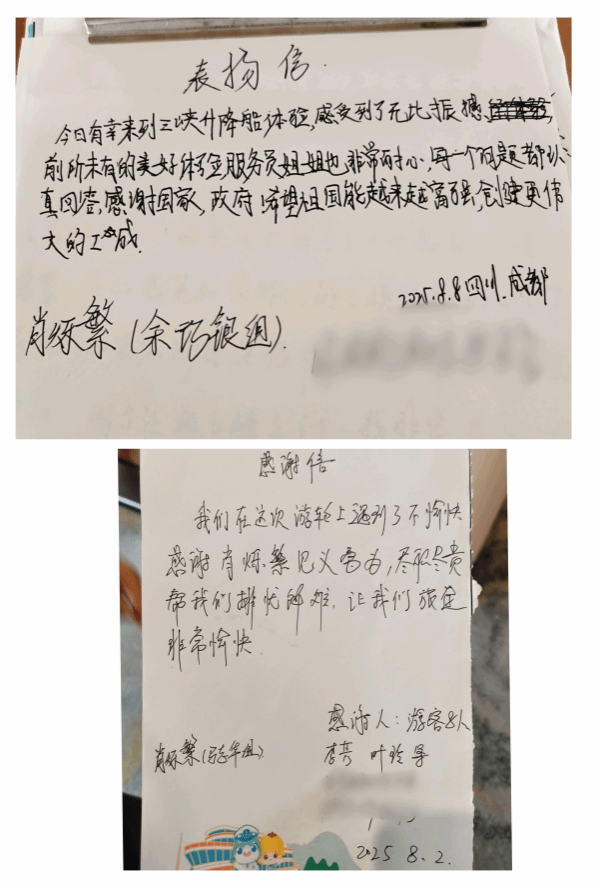 表扬信
今日有幸来到三峡升降船体验,感受到了无比振撼、
前所未有的美好体验服务员姐姐也非常耐心,每一个问题都认
真回答,感谢国家,政府 希望祖国能越来越富强,创建更伟
大的工成.
2025.8.8四川.成都
肖烁繁(余巧银组).
感谢信
我们在这次游轮上遇到了不愉快
感谢肖烁繁见义勇为,尽职尽责
帮我们排忧解难.让我们旅途
非常愉快.
感谢人:游客8人
肖烁繁
2025 8.2.